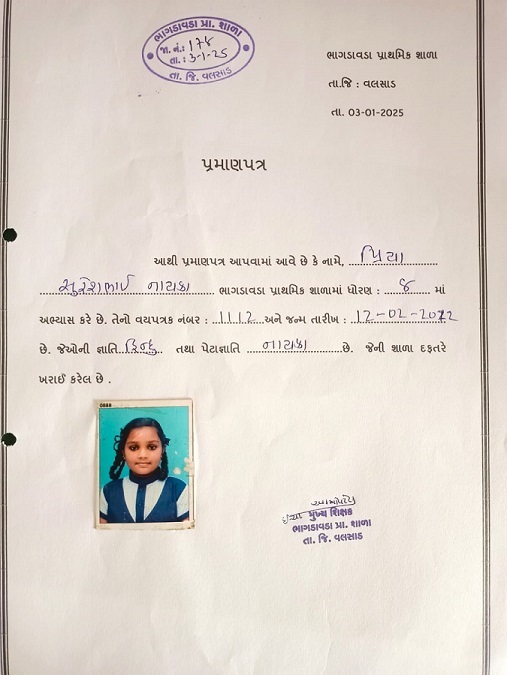 ભાગડાવડા પ્રા. શાળા
જા. નં.: 174
તા.: 3-1-25
તા. જિ. વલસાડ
ભાગડાવડા પ્રાથમિક શાળા
તા.જિ : વલસાડ
તા. 03-01-2025
પ્રમાણપત્ર
આથી પ્રમાણપત્ર આપવામાં આવે છે કે નામે, પ્રિયા
સુરેશભાઈ નાયકા ભાગડાવડા પ્રાથમિક શાળામાં ધોરણ : ૭ માં
અભ્યાસ કરે છે. તેનો વયપત્રક નંબર : 1112 અને જન્મ તારીખ : 12-02-2012
છે. જેઓની જ્ઞાતિ હિન્દુ તથા પેટાજ્ઞાતિ નાયકા છે. જેની શાળા દફતરે
ખરાઈ કરેલ છે .
મુખ્ય શિક્ષક
ભાગડાવડા પ્રા. શાળા
તા. જિ. વલસાડ